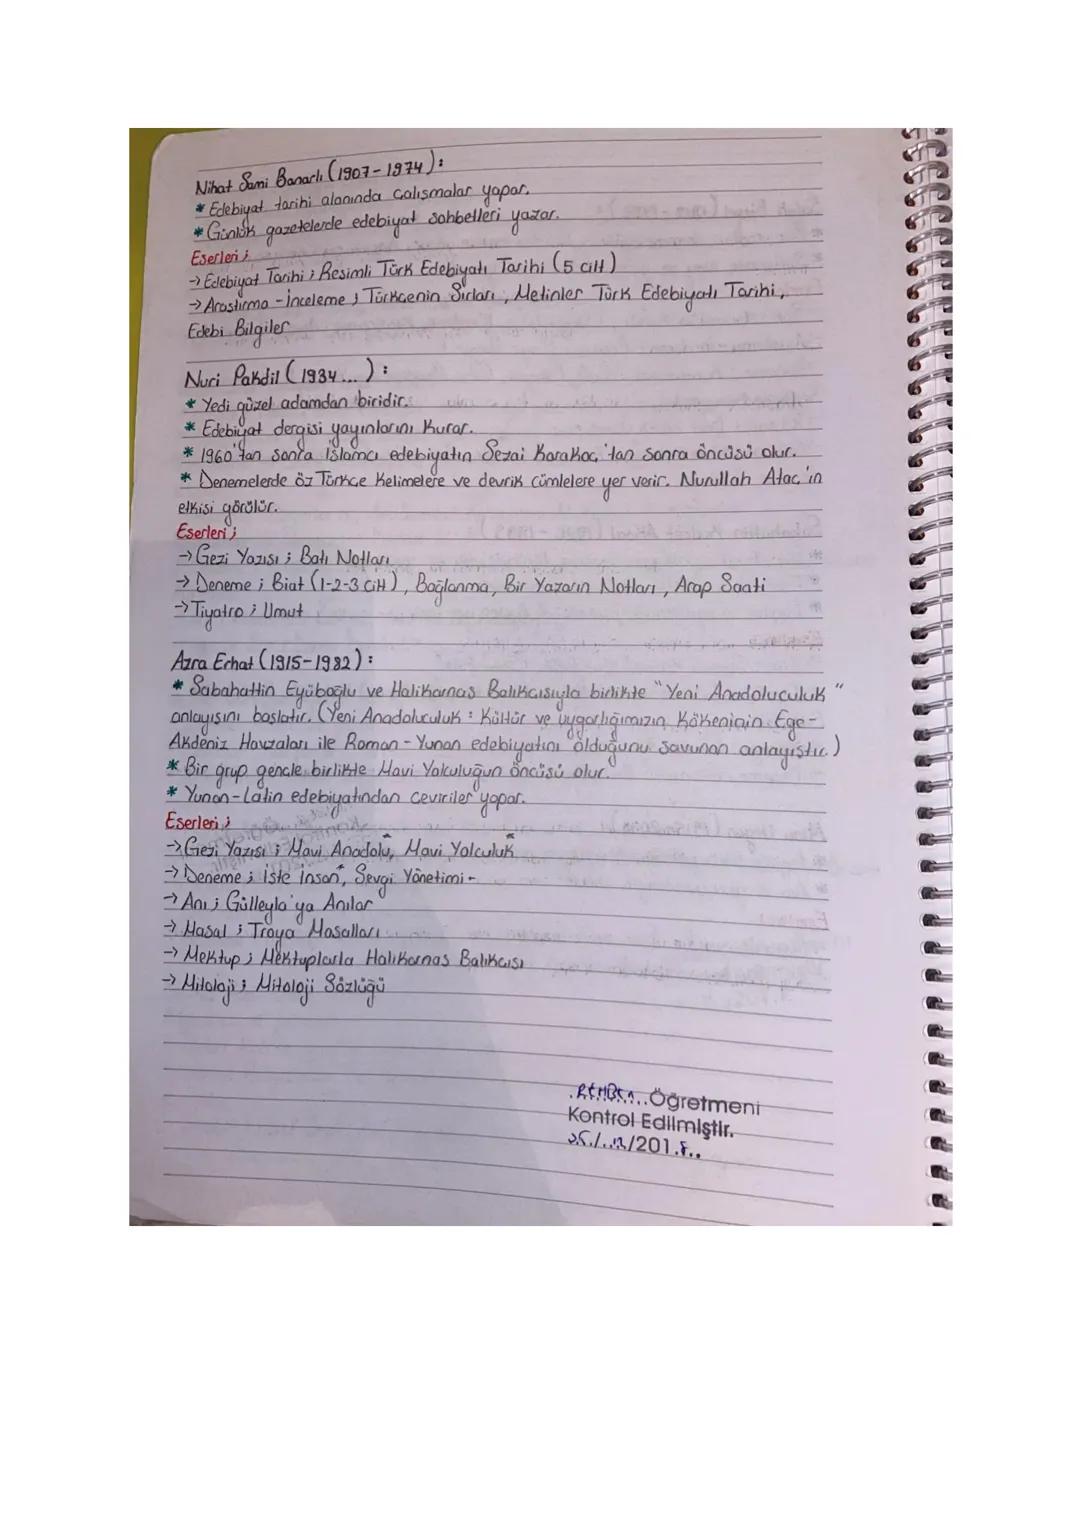 Nihat Sami Banarlı (1907-1974):
* Edebiyat tarihi alanında çalışmalar yapar.
* Günlük gazetelerde edebiyat sohbetleri yazar.
Eserleri;
→ Edebiyat Tarihi; Resimli Türk Edebiyatı Tarihi (5 cilt)
→ Araştırma-İnceleme; Türkçenin Sırları, Metinler Türk Edebiyatı Tarihi,
Edebi Bilgiler
Nuri Pakdil (1934...):
* Yedi güzel adamdan biridir.
* Edebiyat dergisi yayınlarını kurar.
* 1960'tan sonra İslamcı edebiyatın Sezai Karakoç'tan sonra öncüsü olur.
* Denemelerde öz Türkçe kelimelere ve devrik cümlelere yer verir. Nurullah Ataç'ın
etkisi görülür.
Eserleri;
→ Gezi Yazısı; Batı Notları
→ Deneme; Biat (1-2-3 cilt), Bağlanma, Bir Yazarın Notları, Arap Saati
→ Tiyatro; Umut
Azra Erhat (1915-1982):
* Sabahattin Eyüboğlu ve Halikarnas Balıkçısıyla birlikte "Yeni Anadoluculuk"
anlayışını başlatır. (Yeni Anadoluculuk: Kültür ve uygarlığımızın kökeninin Ege-
Akdeniz Havzaları ile Roman-Yunan edebiyatını olduğunu savunan anlayıştır.)
* Bir grup gençle birlikte Mavi Yolculuğun öncüsü olur.
* Yunan-Latin edebiyatından çeviriler yapar.
Eserleri;
→ Gezi Yazısı; Mavi Anadolu, Mavi Yolculuk
→ Deneme; İşte İnsan, Sevgi Yönetimi-
→ Anı; Gülleyla'ya Anılar
→ Masal; Troya Masalları
→ Mektup; Mektuplarla Halikarnas Balıkçısı
→ Mitoloji; Mitoloji Sözlüğü
Öğretmeni
Kontrol Edilmiştir.